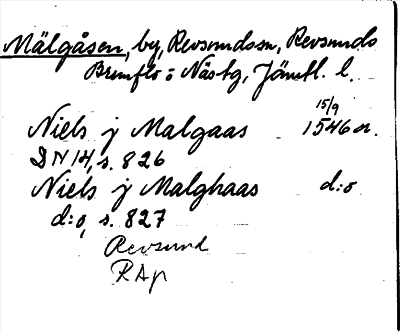 Mälgåsen, by, Revsundssn, Revsunds
Brunflo o Näs tg, Jämtl. l.
15/9
Niels j Malgaas 1546 or.
DN 14, s. 826
Niels j Malghaas d:o
d:o, s. 827
Revsund
RAp